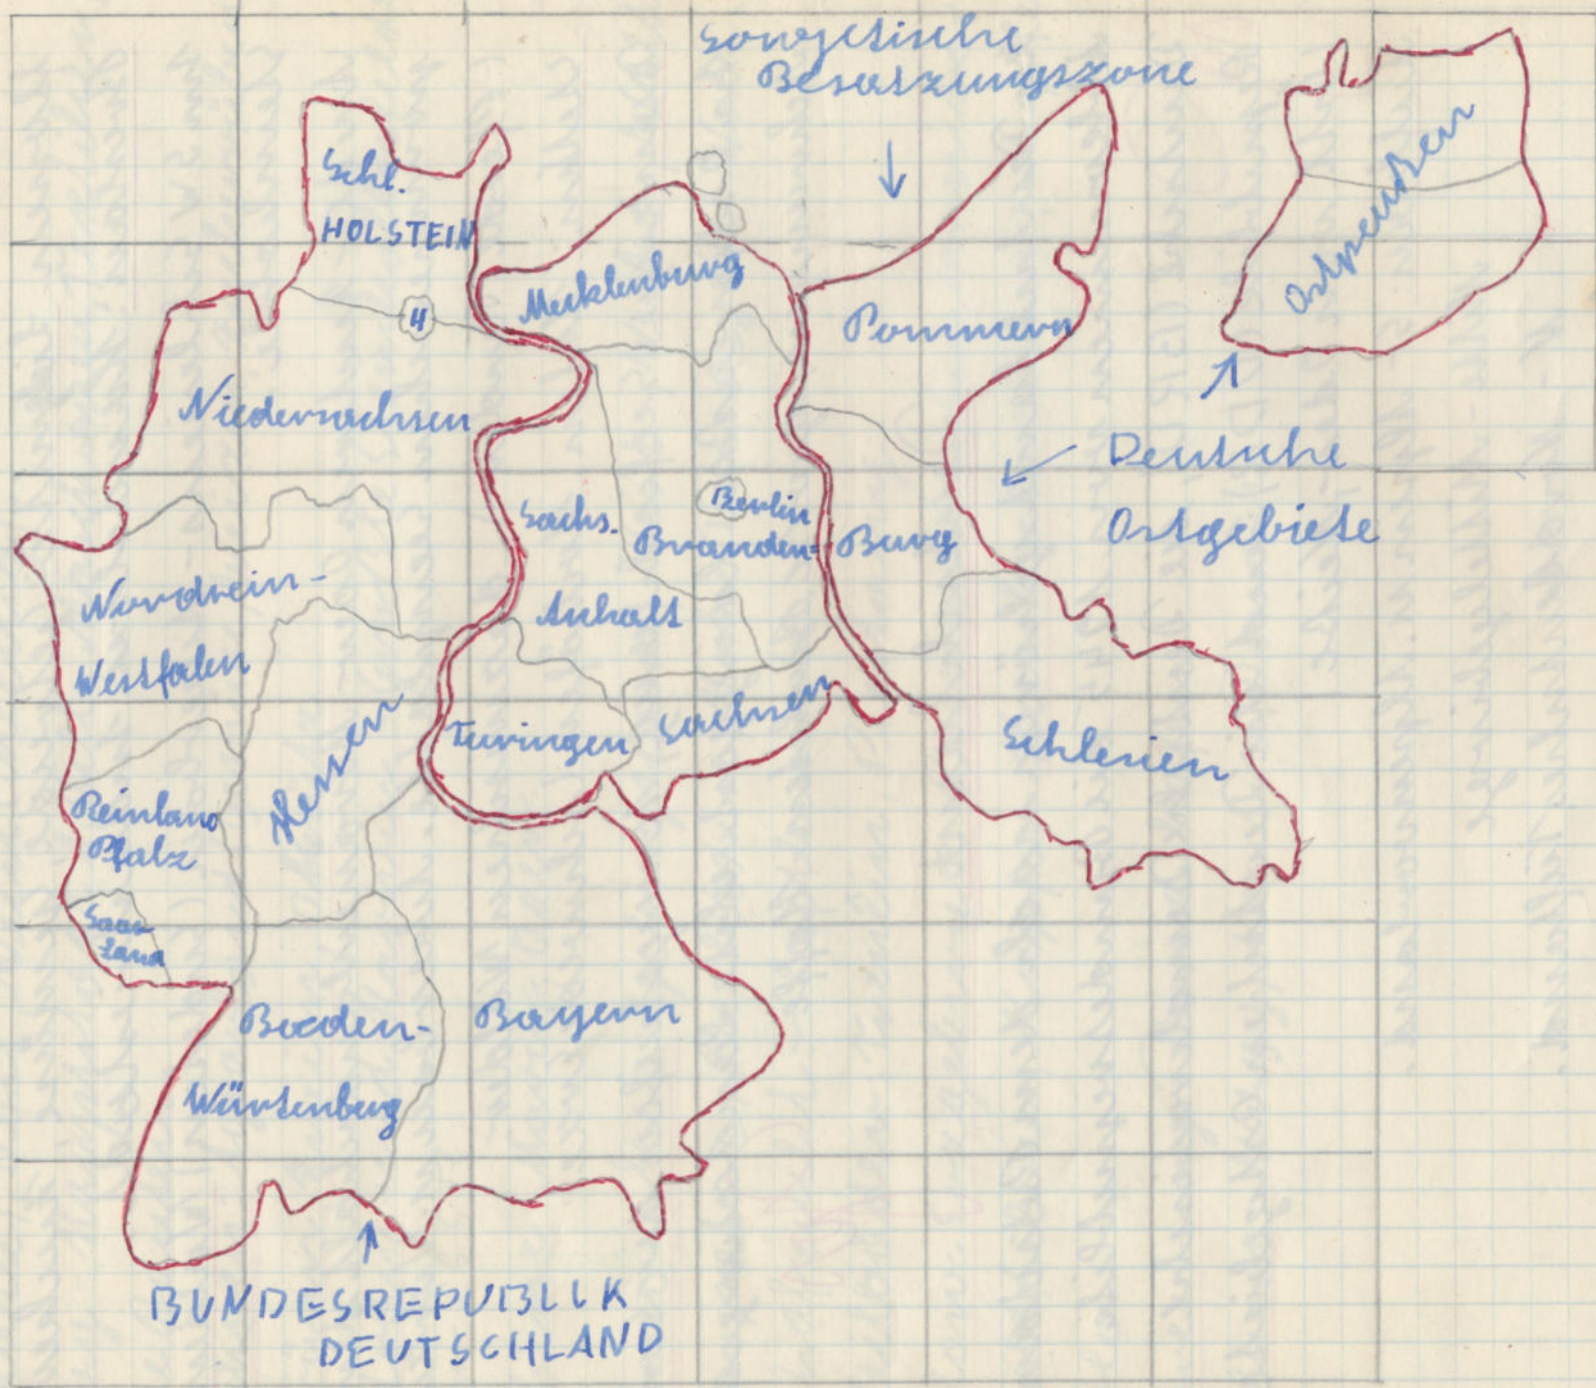 Sowjetische
Besatzungszone
Schl.
HOLSTEIN
Mecklenburg
Pommern
Ostpreußen
H
Niedersachsen
Deutsche
Ostgebiete
Sachs.
Anhalt
Berlin
Branden-
Burg
Nordrein-
Westfalen
Hessen
Türingen
Sachsen
Schlesien
Reinland
Pfalz
Saar
Land
Baden-
Würtenberg
Bayern
BUNDESREPUBLIK
DEUTSCHLAND